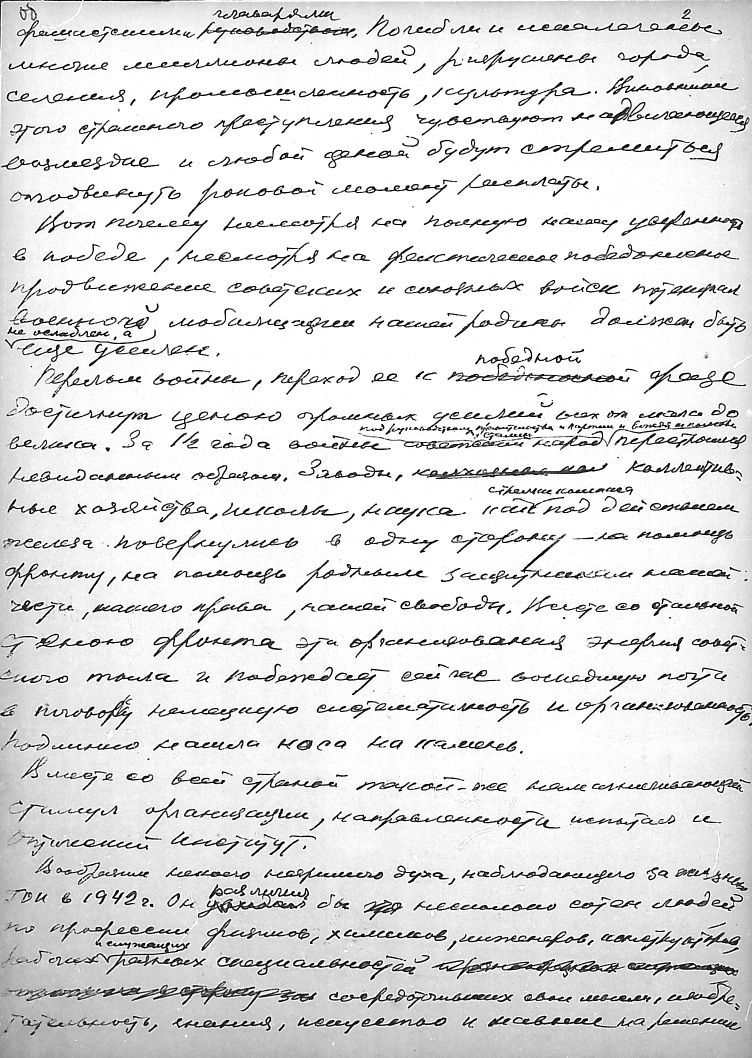 об
2
главарями
фашистскими руководством. Погибли и искалечены
многие миллионы людей, разрушены города,
селения, промышленность, культура. Виновники
этого страшного преступления чувствуют надвигающееся
возмездие и любой ценой будут стремиться
отодвинуть роковой момент расплаты.
Вот почему несмотря на полную нашу уверенность
в победе, несмотря на фактическое победоносное
продвижение советских и союзных войск потенциал
военной мобилизации нашей родины должен быть
не ослаблен, а
еще усилен.
победной
Перелом войны, переход ее к победоносной фазе
достигнут ценою огромных усилий всех от мала до
под руководством правительства и партии и вождя
Сталина
велика. За 1½ года войны советский народ перестроился
невиданным образом. Заводы, коллектив-
стрелки компаса
ные хозяйства, школы, наука как под действием
железа повернулись в одну сторону – на помощь
фронту, на помощь родным защитникам нашей
чести, нашего права, нашей свободы. Вместе со стальной
стеною фронта эта организованная энергия совет-
ского тыла и побеждает сейчас вошедшую почти
в поговорку немецкую систематичность и организованность.
Подлинно нашла коса на камень.
Вместе со всей страной такой-же
стимул организации, направленности испытал и
Оптический Институт.
Вообразим некоего незримого духа, наблюдающего за жизнью
различил
ГОИ в 1942 г. Он увидал бы несколько сотен людей
по профессии физиков, химиков, инженеров, конструкторов,
и служащих
рабочих разных специальностей
сосредоточивших свои мысли, изобре-
тательность, знания, искусство и навыки на решении